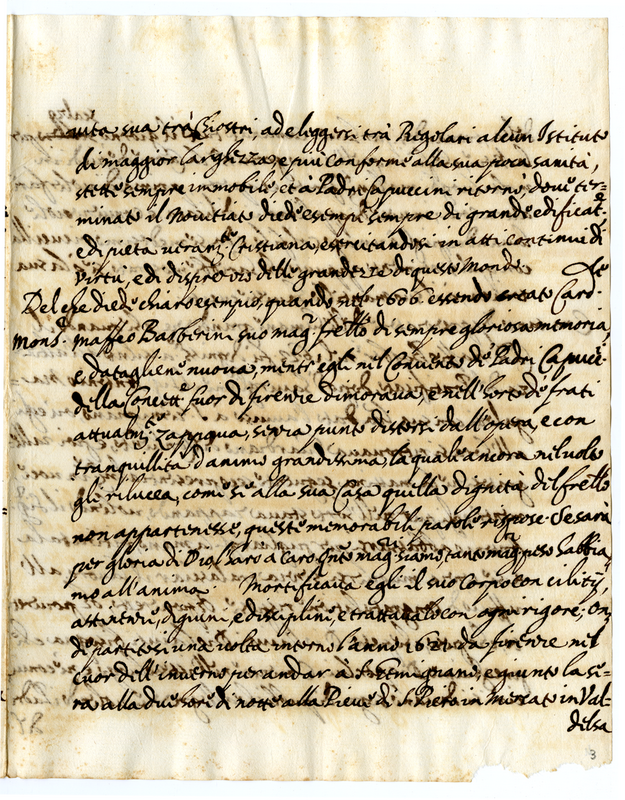 uita sua trà Chiostri, ad eleggersi trà Regolari alcun Istituto
di maggior larghezza, e più conforme alla sua poca sanità,
stette sempre immobile, et à Padri Capuccini ritornò, doue ter=
minato il Nouitiato diede esempi sempre di grande edificat.e
e di pietà ueram.te Cristiana, esercitandosi in atti continui di
Virtù, e di disprezzo delle grandezze di questo Mondo.
Del che diede chiaro esempio, quando nell' 1606 essendo creato Card.le
Mons.r Maffeo Barberini suo mag.r frello di sempre gloriosa memoria,
e datagliene nuoua, mentr' egli nel Conuento de Padri Capucc.i
della Concett.e fuor di firenze dimoraua, e nell' horto de frati
attualm.te zappaua, senza punto distorsi dall' opera, e con
tranquillità d'animo grandissima, la quale ancora nel uolto
gli rilucea, come se alla sua Casa quella dignità del frello
non appartenesse, queste memorabili parole rispose. Se sarà
per gloria di Dio haro a caro, q.nto mag.ri siamo, tanto mag.r peso habbia=
mo all' anima. Mortificaua egli il suo corpo con cilitij,
astinenze, digiuni, e discipline, e trattaualo con ogni rigore; On=
de partitosi una uolta intorno l'anno 1621 da firenze nel
cuor dell' inuerno per andar à S. Gimignano, e giunto la se=
ra alla due hore di notte alla Pieue di S. Piero in Mercato in Val=
delsa
3